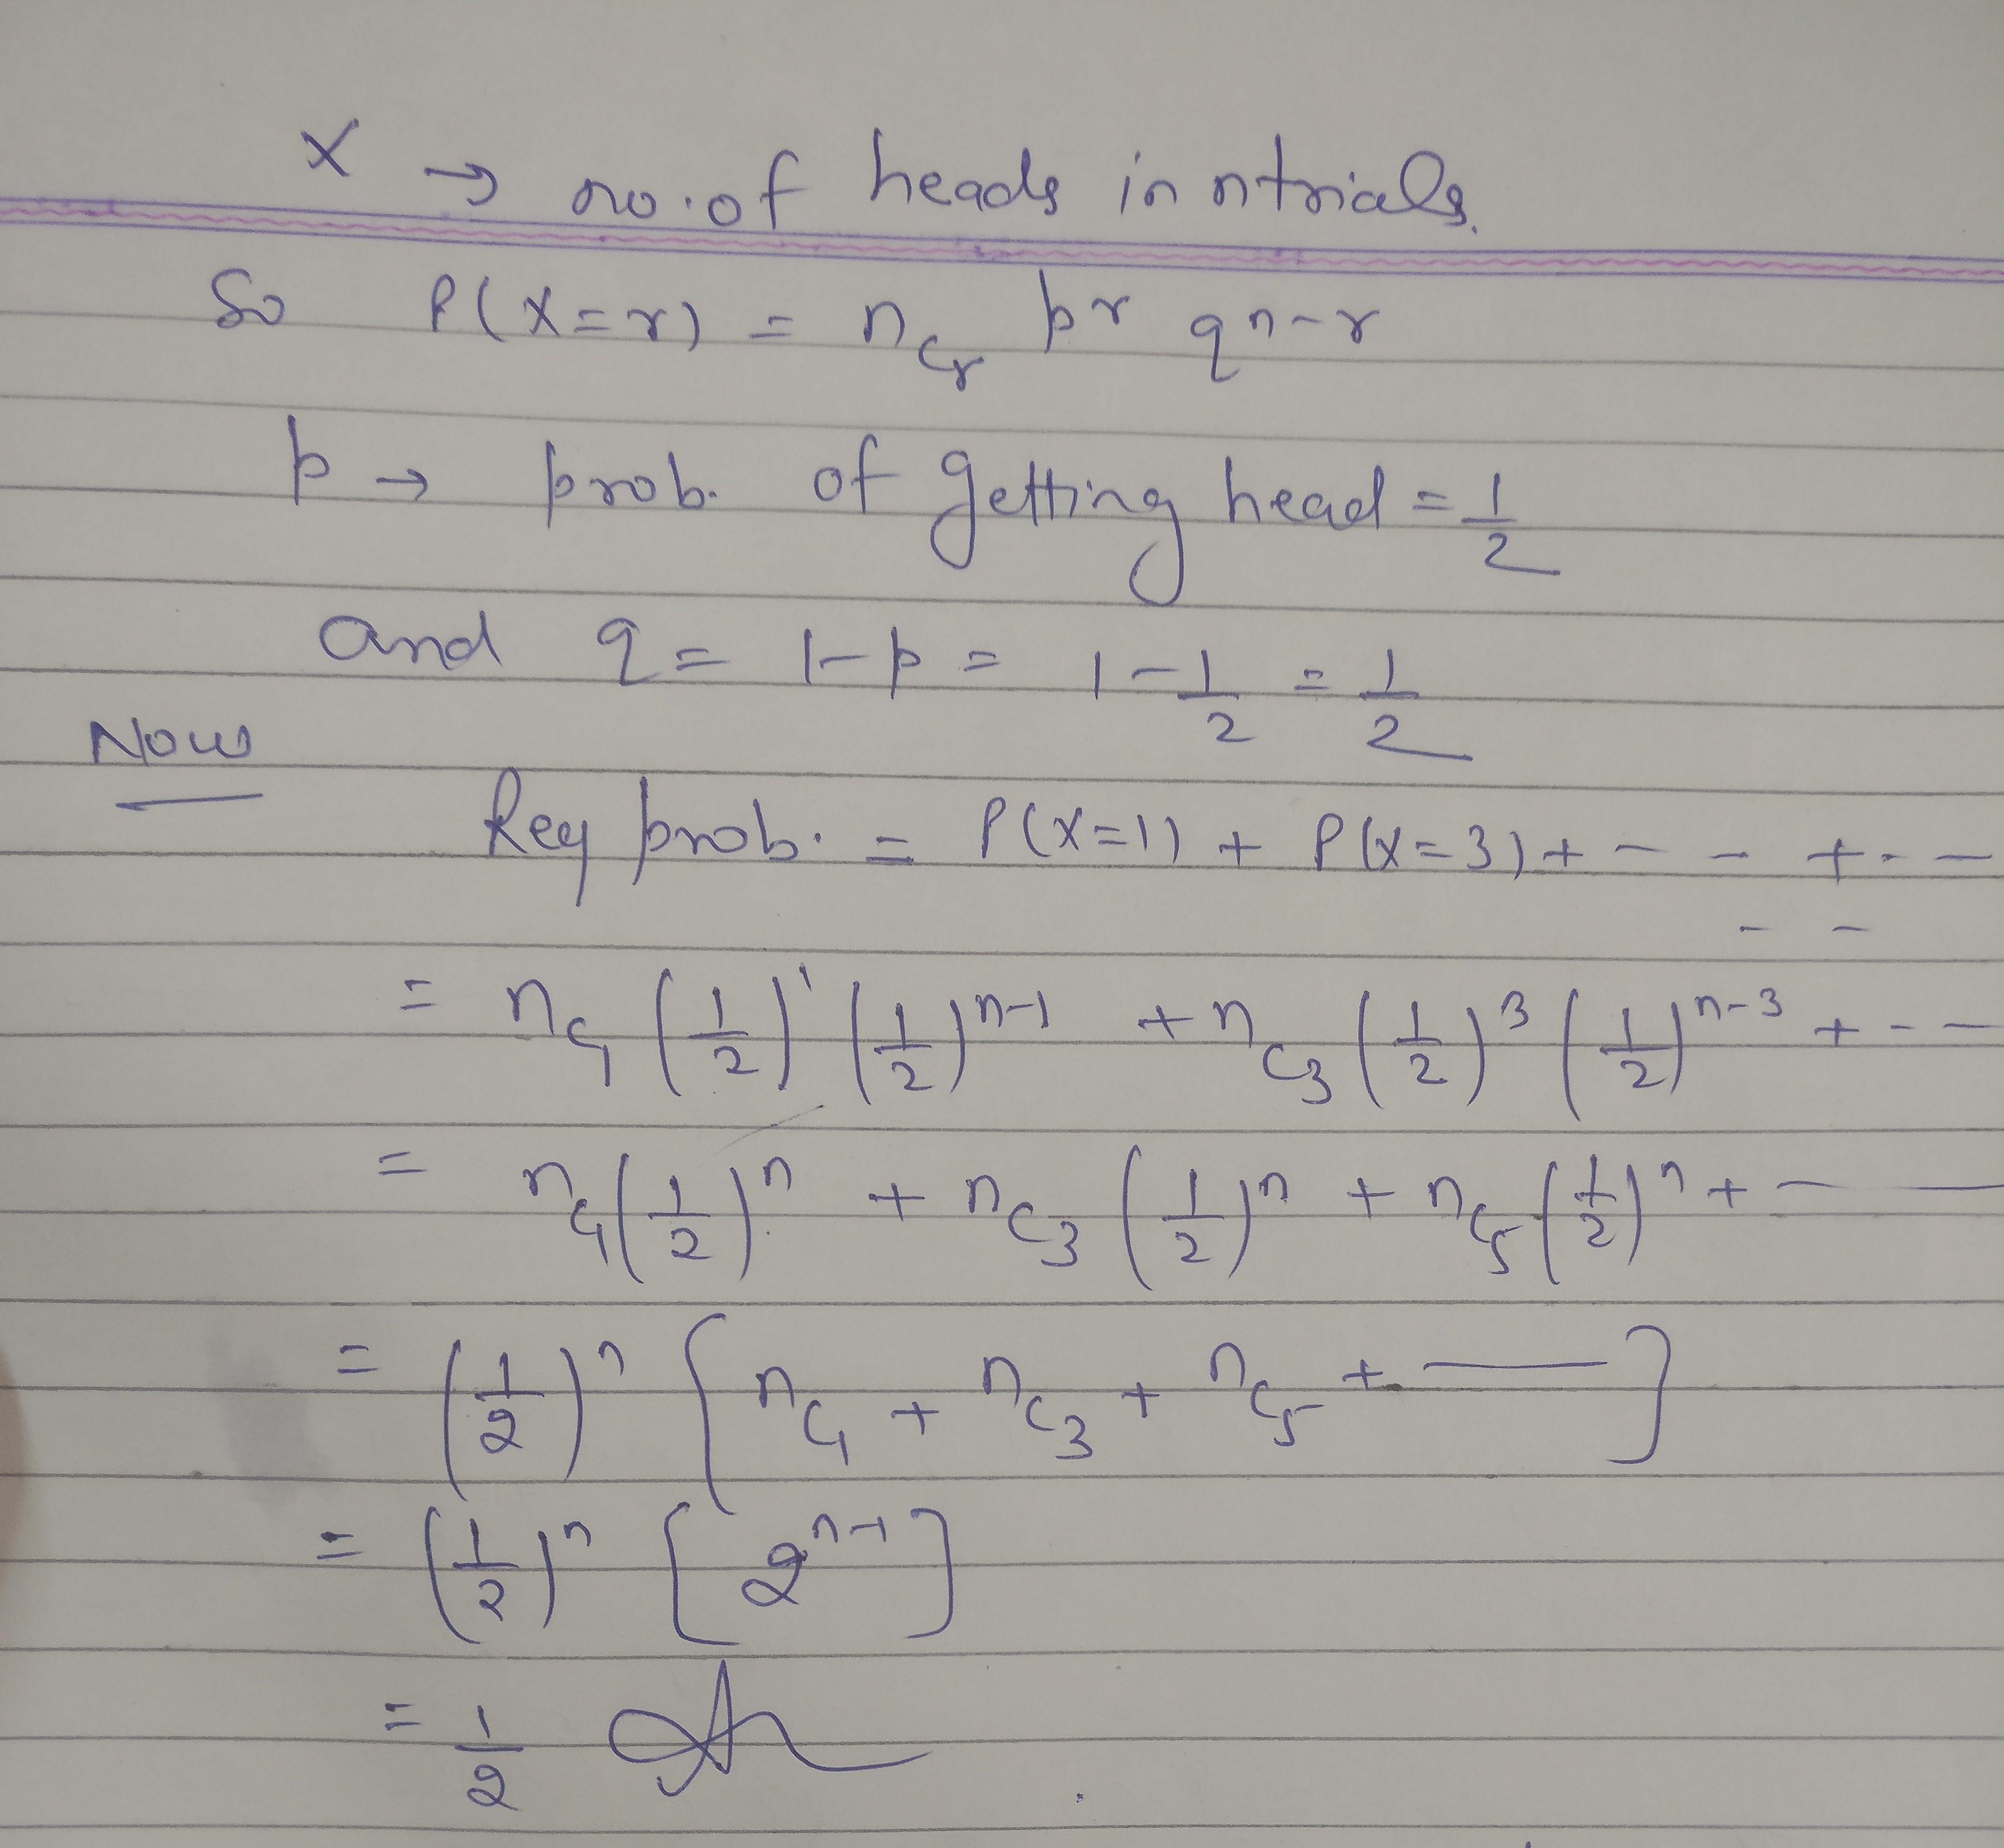 X → no. of heads in n trials.
So P(X=r) = nCr p^r q^n-r
p → prob. of getting head = 1/2
and q = 1-p = 1-1/2 = 1/2
Now
Req prob. = P(X=1) + P(X=3) + - - + - -
- -
= nC1 (1/2)^1 (1/2)^n-1 + nC3 (1/2)^3 (1/2)^n-3 + - -
= nC1 (1/2)^n + nC3 (1/2)^n + nC5 (1/2)^n + - -
= (1/2)^n [nC1 + nC3 + nC5 + —]
= (1/2)^n [2^n-1]
= 1/2